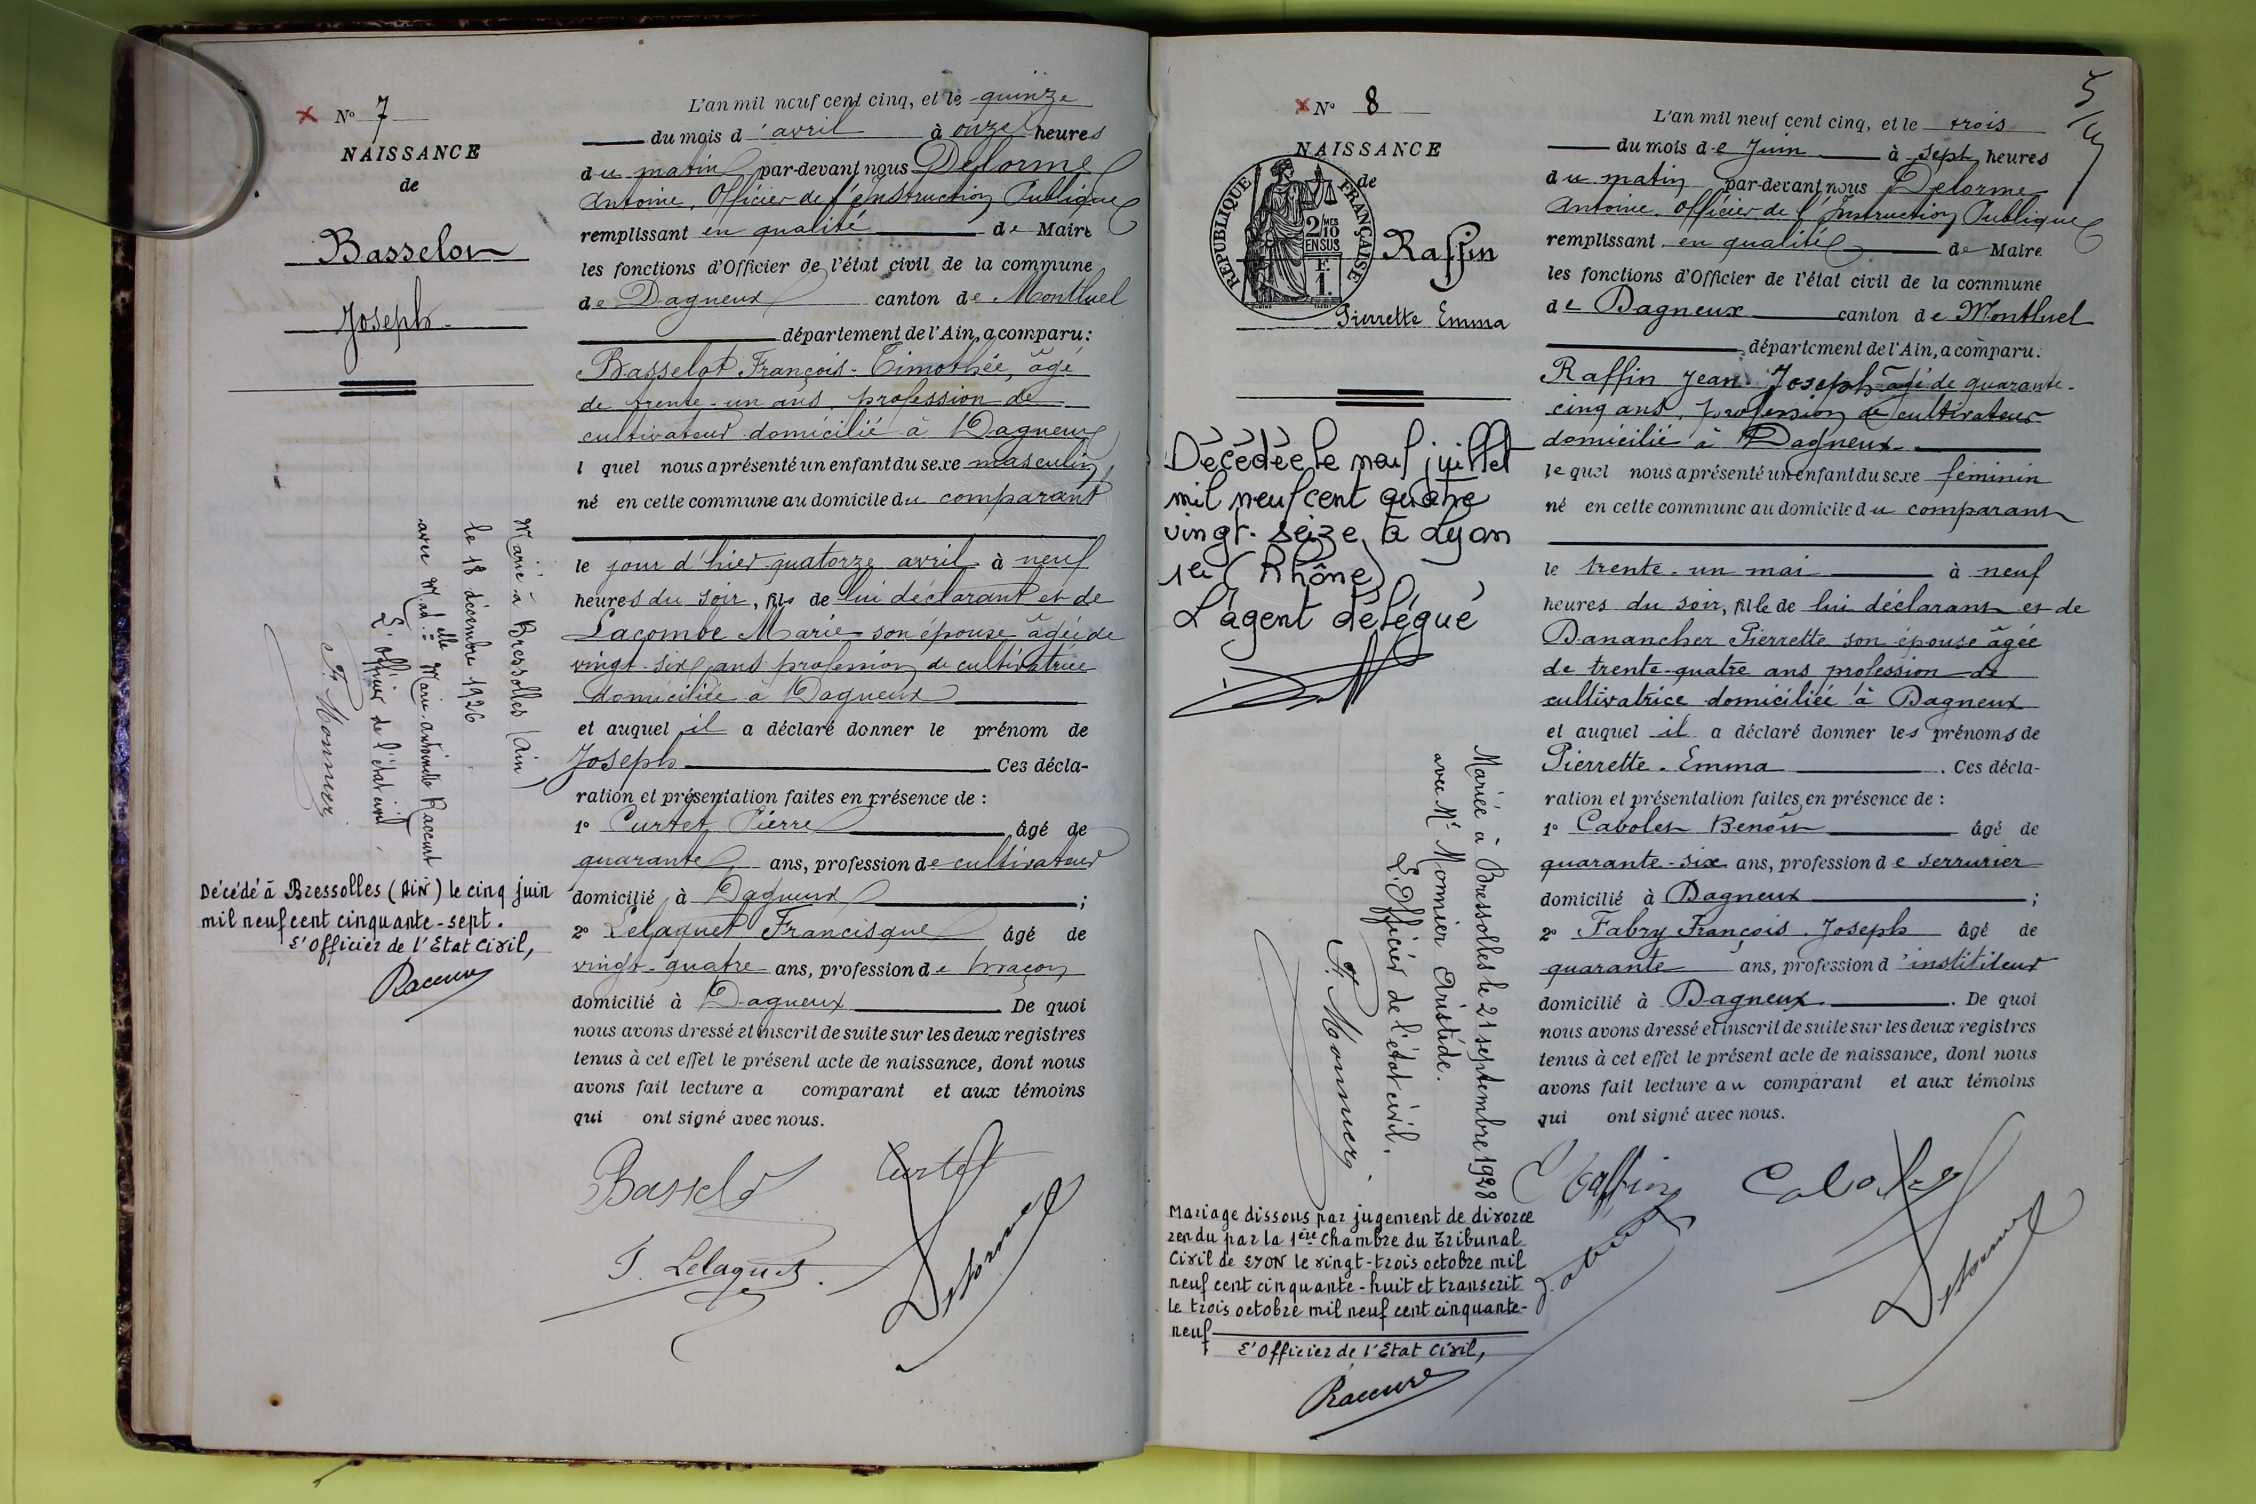 N° 7
NAISSANCE
de
Basselon
Joseph
Marié à Bressolles (Ain)
le 18 décembre 1926
avec Mad.elle Marie-Antoinette Raccurt
L'officier de l'état civil
F. Monnier
Décédé à Bressolles (Ain) le cinq juin
mil neuf cent cinquante-sept.
L'Officier de l'Etat Civil,
L'an mil neuf cent cinq, et le quinze
du mois d'avril à onze heures
du matin par-devant nous Delorme
Antoine, Officier de l'Instruction Publique
remplissant en qualité de Maire
les fonctions d'Officier de l'état civil de la commune
de Dagneux canton de Montluel
département de l'Ain, a comparu:
Basselot François-Timothée, âgé
de trente-un ans profession de
cultivateur domicilié à Dagneux
l quel nous a présenté un enfant du sexe masculin,
né en cette commune au domicile du comparant
le jour d'hier quatorze avril à neuf
heures du soir, fils de lui déclarant et de
Lacombe Marie son épouse âgée de
vingt-six ans profession de cultivatrice
domiciliée à Dagneux
et auquel il a déclaré donner le prénom de
Joseph Ces décla-
ration et présentation faites en présence de :
1° Curtet Pierre âgé de
quarante ans, profession de cultivateur
domicilié à Dagneux ;
2° Lelaquet Francisque âgé de
vingt-quatre ans, profession de maçon
domicilié à Dagneux De quoi
nous avons dressé et inscrit de suite sur les deux registres
tenus à cet effet le présent acte de naissance, dont nous
avons fait lecture a comparant et aux témoins
qui ont signé avec nous.
Basselot Curtet
F. Lelaquet Delorme
5
N° 8
NAISSANCE
de
REPUBLIQUE FRANÇAISE
2MES
10
EN SUS
F.
1.
Raffin
Pierrette Emma
Décédée le neuf juillet
mil neuf cent quatre
vingt-seize à Lyon
1er (Rhône)
L'agent délégué
Mariée à Bressolles le 21 septembre 1928
avec Mr Monnier Aristide.
L'Officier de l'état civil,
F. Monnier
Mariage dissous par jugement de divorce
rendu par la 1ère Chambre du Tribunal
Civil de LYON le vingt-trois octobre mil
neuf cent cinquante-huit et transcrit
le trois octobre mil neuf cent cinquante-
neuf
L'Officier de l'Etat Civil,
L'an mil neuf cent cinq, et le trois
du mois de Juin à sept heures
du matin par-devant nous Delorme
Antoine, Officier de l'Instruction Publique
remplissant en qualité de Maire
les fonctions d'Officier de l'état civil de la commune
de Dagneux canton de Montluel
département de l'Ain, a comparu:
Raffin Jean Joseph âgé de quarante-
cinq ans, profession de cultivateur
domicilié à Dagneux
le quel nous a présenté un enfant du sexe féminin
né en cette commune au domicile du comparant
le trente-un mai à neuf
heures du soir, fille de lui déclarant et de
Danancher Pierrette son épouse âgée
de trente-quatre ans profession de
cultivatrice domiciliée à Dagneux
et auquel il a déclaré donner les prénoms de
Pierrette-Emma . Ces décla-
ration et présentation faites en présence de :
1° Cabolet Benoît âgé de
quarante-six ans, profession de serrurier
domicilié à Dagneux ;
2° Fabry François Joseph âgé de
quarante ans, profession d'instituteur
domicilié à Dagneux . De quoi
nous avons dressé et inscrit de suite sur les deux registres
tenus à cet effet le présent acte de naissance, dont nous
avons fait lecture au comparant et aux témoins
qui ont signé avec nous.
Raffin Cabolet
Delorme